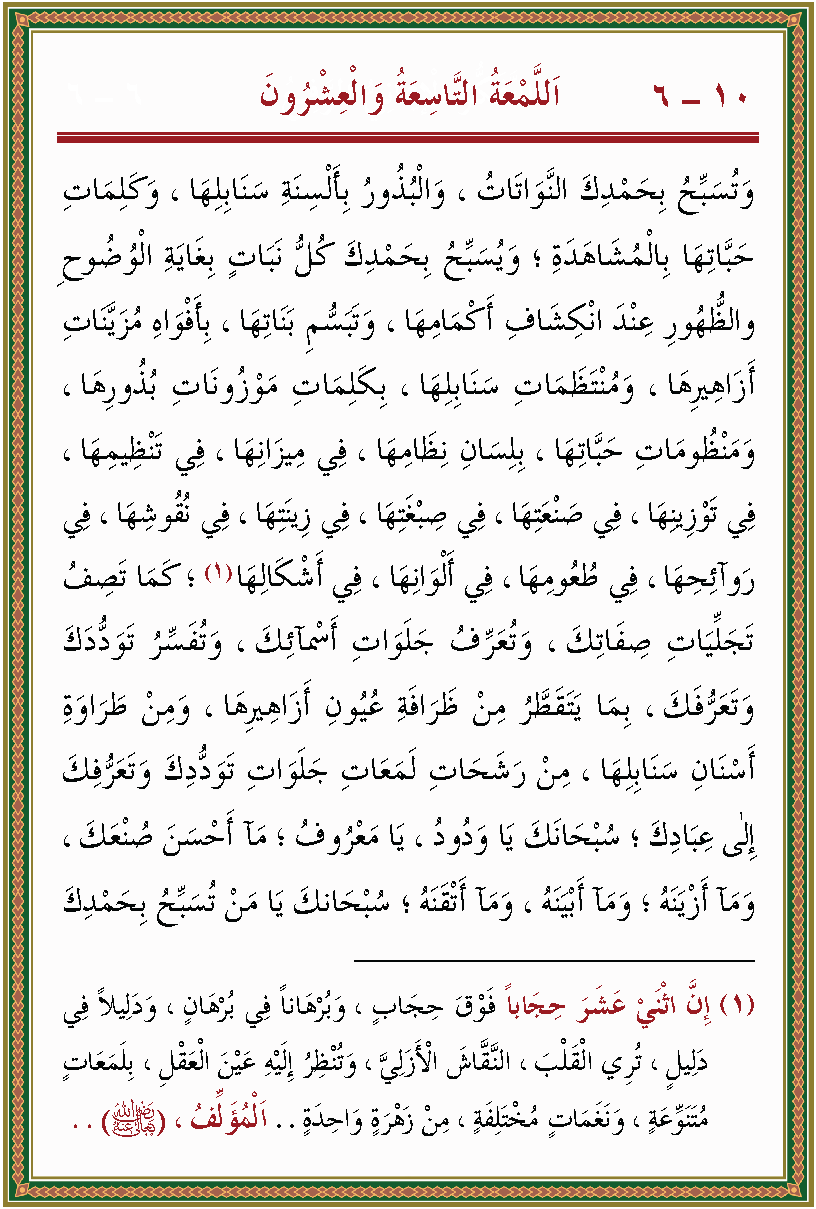 ١٠ – ٦ اَللَّمْعَةُ التَّاسِعَةُ وَالْعِشْرُونَ
وَتُسَبِّحُ بِحَمْدِكَ النَّوَاتَاتُ ، وَالْبُذُورُ بِأَلْسِنَةِ سَنَابِلِهَا ، وَكَلِمَاتِ
حَبَّاتِهَا بِالْمُشَاهَدَةِ ؛ وَيُسَبِّحُ بِحَمْدِكَ كُلُّ نَبَاتٍ بِغَايَةِ الْوُضُوحِ
والظُّهُورِ عِنْدَ انْكِشَافِ أَكْمَامِهَا ، وَتَبَسُّمِ بَنَاتِهَا ، بِأَفْوَاهِ مُزَيَّنَاتِ
أَزَاهِيرِهَا ، وَمُنْتَظَمَاتِ سَنَابِلِهَا ، بِكَلِمَاتِ مَوْزُونَاتِ بُذُورِهَا ،
وَمَنْظُومَاتِ حَبَّاتِهَا ، بِلِسَانِ نِظَامِهَا ، فِي مِيزَانِهَا ، فِي تَنْظِيمِهَا ،
فِي تَوْزِينِهَا ، فِي صَنْعَتِهَا ، فِي صِبْغَتِهَا ، فِي زِينَتِهَا ، فِي نُقُوشِهَا ، فِي
رَوَآئِحِهَا ، فِي طُعُومِهَا ، فِي أَلْوَانِهَا ، فِي أَشْكَالِهَا(١) ؛ كَمَا تَصِفُ
تَجَلِّيَاتِ صِفَاتِكَ ، وَتُعَرِّفُ جَلَوَاتِ أَسْمَآئِكَ ، وَتُفَسِّرُ تَوَدُّدَكَ
وَتَعَرُّفَكَ ، بِمَا يَتَقَطَّرُ مِنْ ظَرَافَةِ عُيُونِ أَزَاهِيرِهَا ، وَمِنْ طَرَاوَةِ
أَسْنَانِ سَنَابِلِهَا ، مِنْ رَشَحَاتِ لَمَعَاتِ جَلَوَاتِ تَوَدُّدِكَ وَتَعَرُّفِكَ
إِلٰى عِبَادِكَ ؛ سُبْحَانَكَ يَا وَدُودُ ، يَا مَعْرُوفُ ؛ مَآ أَحْسَنَ صُنْعَكَ ،
وَمَآ أَزْيَنَهُ ؛ وَمَآ أَبْيَنَهُ ، وَمَآ أَتْقَنَهُ ؛ سُبْحَانكَ يَا مَنْ تُسَبِّحُ بِحَمْدِكَ
(١) إِنَّ اثْنَيْ عَشَرَ حِجَاباً فَوْقَ حِجَابٍ ، وَبُرْهَاناً فِي بُرْهَانٍ ، وَدَلِيلاً فِي
دَلِيلٍ ، تُرِي الْقَلْبَ ، النَّقَّاشَ الْأَزَلِيَّ ، وَتُنْظِرُ إِلَيْهِ عَيْنَ الْعَقْلِ ، بِلَمَعَاتٍ
مُتَنَوِّعَةٍ ، وَنَغَمَاتٍ مُخْتَلِفَةٍ ، مِنْ زَهْرَةٍ وَاحِدَةٍ . . اَلْمُؤَلِّفُ ، (رضي الله تعالى عنه) . .